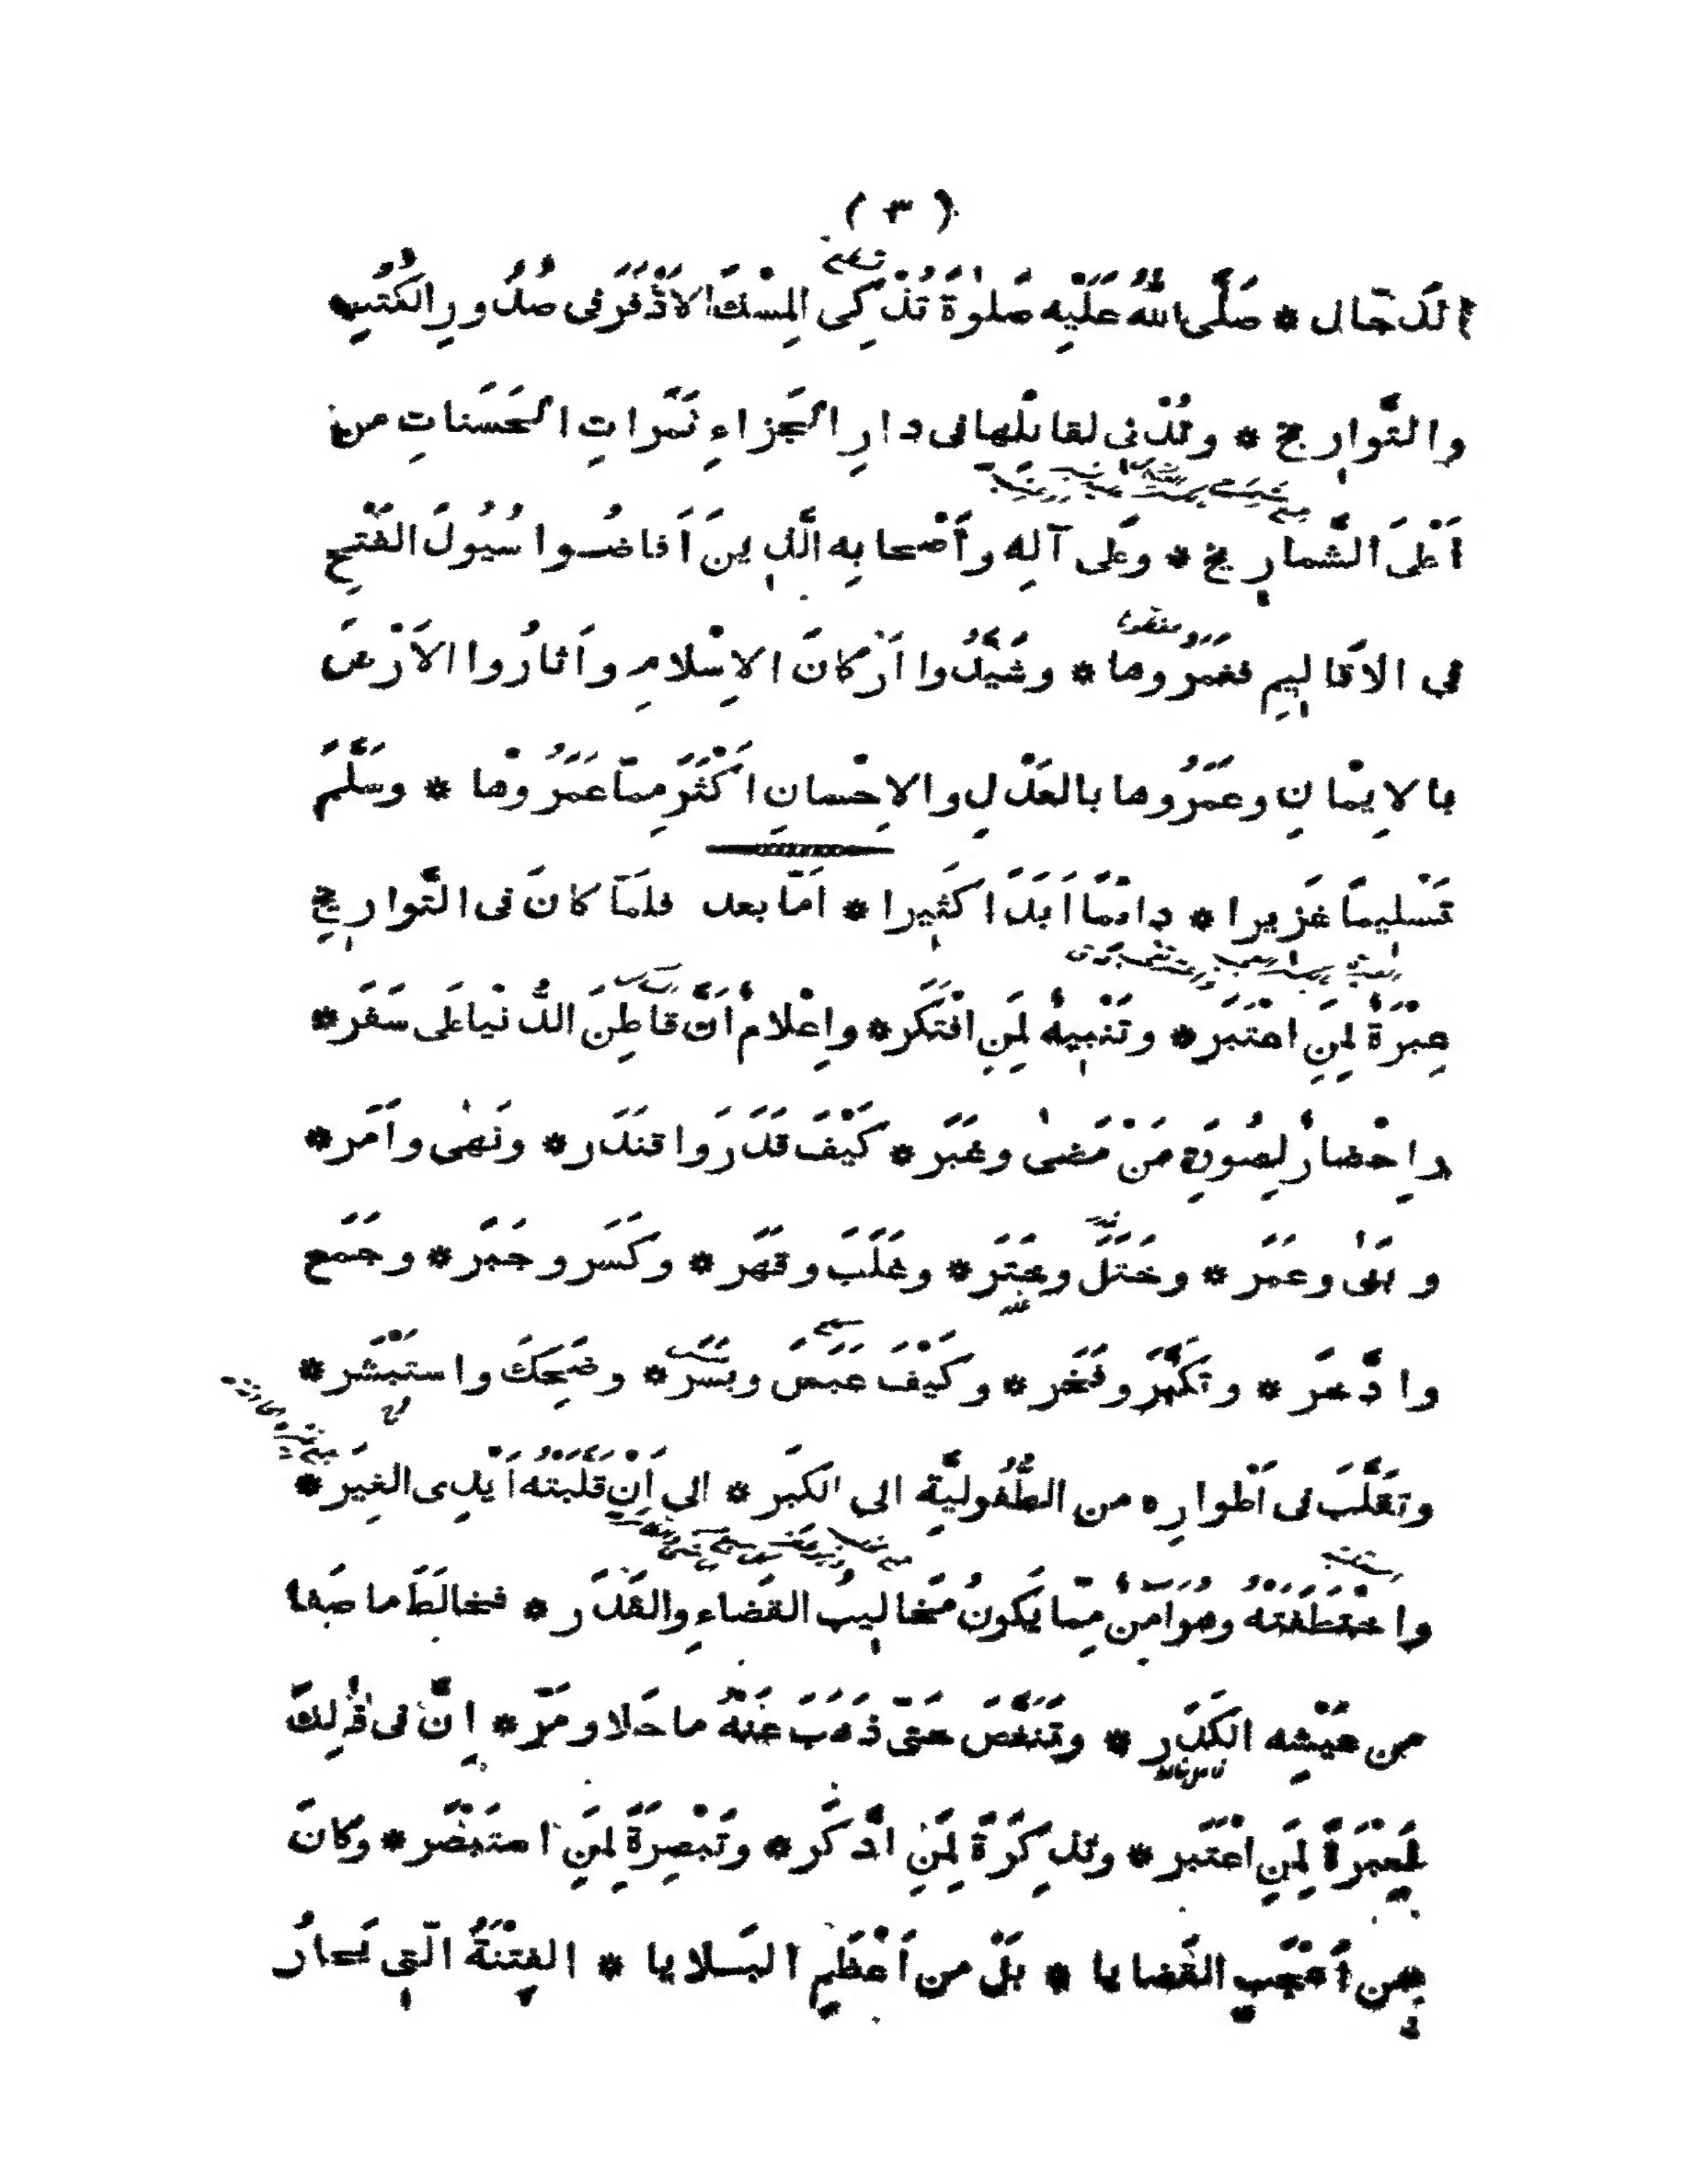 ( ٣ )
الدَّجّال * صَلَّى اللّٰهُ عَلَيْهِ صَلٰوةً تُذْكِى المِسْكَ الاَذْفَرَ فى صُدُورِ الكُتُبِ
والتَّوارِيخ * وتُدْنى لقائلِها فى دارِ الجَزاءِ ثَمَراتِ الحَسَناتِ من
اَعْلَى الشَّمارِيخ * وعَلى آلِه وأَصْحابِه الَّذِينَ اَفاضُوا سُيُولَ الفَتْحِ
فى الاَقالِيمِ فغَمَرُوها * وشَيَّدُوا اَرْكانَ الاِسْلامِ واَثارُوا الاَرْضَ
بالاِيْمانِ وعَمَرُوها بالعَدْلِ والاِحْسانِ اَكْثَرَ مِمّا عَمَرُوْها * وسَلَّمَ
تَسْلِيمًا غَزيرا * دائمًا اَبَدًا كَثِيرا * اَمّا بعد فلَمّا كانَ فى التَّوارِيخِ
عِبْرَةٌ لِمَنِ اعْتَبَرَ * وتَنْبِيهٌ لِمَنِ افْتَكَر * واِعْلامٌ أَنَّ قاطِنَ الدُّنْيا على سَفَر *
واِحْضارٌ لِصُورَةِ مَنْ مَضىٰ وغَبَر * كَيْفَ قدَرَ واقتَدَر * ونَهىٰ واَمَر *
وبَنىٰ وعَمَر * وخَتَلَ وخَتَر * وغَلَبَ وقهَر * وكَسَر وجَبَر * وجَمَع
وادَّخَر * وتكَبَّرَ وفَخَر * وكَيْفَ عَبَسَ وبَسَر * وضَحِكَ واستَبْشَر *
وتقَلَّبَ فى اَطْوارِه من الطُّفُولِيَّةِ الى الكِبَر * الى اَنْ قَلَّبَتْهُ اَيْدِى الغِيَر *
واخْتَطَفَتْهُ وهو آمَنُ مِمّا يَكونُ مَخالِيبُ القَضاءِ والقَدَر * فخالَطَ ما صَفا
مِن عَيْشِه الكَدَر * وتَنَغَّصَ حَتّى ذَهَبَ عَنْهُ ما حَلا ومَرّ * اِنَّ فى ذٰلِكَ
لَعِبْرَةً لِمَنِ اعْتَبَر * وتذكِرَةً لِمَنِ ادَّكَر * وتَبْصِرَةً لِمَنِ استَبْصَر * وكانَ
مِن أَعْجَبِ القَضايا * بَلْ من اَعْظَمِ البَلايا * الفِتْنَةُ الّتِى يَحارُ